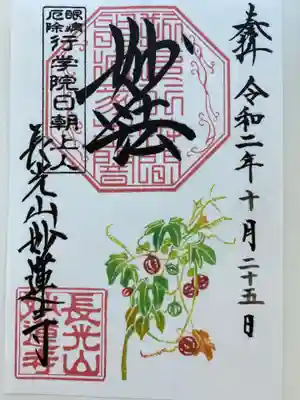 奉拝 令和二年十月二十五日
妙法
眼病
厄除
行学院日朝上人
長光山妙蓮寺
長光山
妙蓮寺